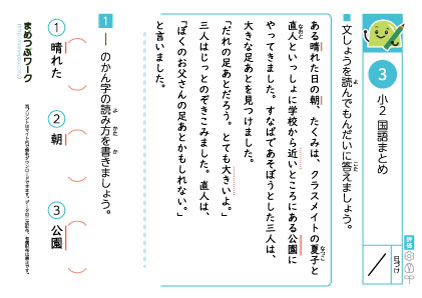 3
小2 国語まとめ
日づけ
■ 文しょうを読んでもんだいに答えましょう。
ある晴れた日の朝、たくみは、クラスメイトの夏子と
直人といっしょに学校から近いところにある公園に
やってきました。すなばであそぼうとした三人は、
大きな足あとを見つけました。
「だれの足あとだろう。とても大きいよ。」
三人はじっとのぞきこみました。直人は、
「ぼくのお父さんの足あとかもしれない。」
と言いました。
1 ── のかん字の読み方を書きましょう。
① 晴れた
② 朝
③ 公園
まめつぶワーク